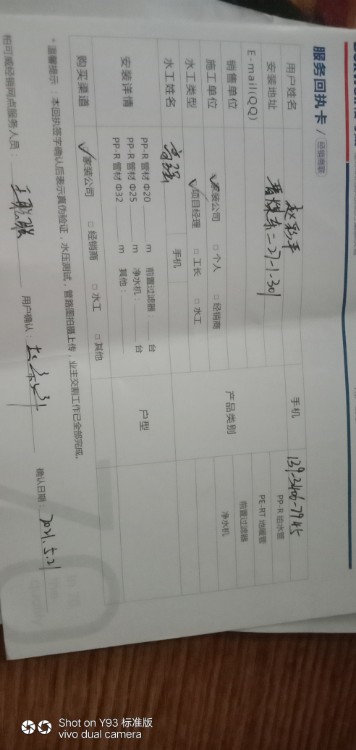 服务回执卡 / 经销商联
用户姓名
手机 139-3406-7945
安装地址 晋煤东二-27-1-301
E-mail(QQ)
销售单位
产品类别
PP-R 给水管
PE-RT 地暖管
前置过滤器
净水机
施工单位 ✓家装公司 □个人 □经销商
水工类型 ✓项目经理 □工长 □水工
水工姓名
手机
安装详情
PP-R 管材 Φ20 m 前置过滤器 台
PP-R 管材 Φ25 m 净水机 台
PP-R 管材 Φ32 m 其他:
户型
购买渠道 ✓家装公司 □经销商 □水工 □其他
* 温馨提示:本回执签字确认后表示真伪验证,水压测试,管路图拍摄上传,业主交割工作已全部完成。
伟星授权网点服务人员:
用户确认:
确认日期: 2021.5.21
Shot on Y93 标准版
vivo dual camera